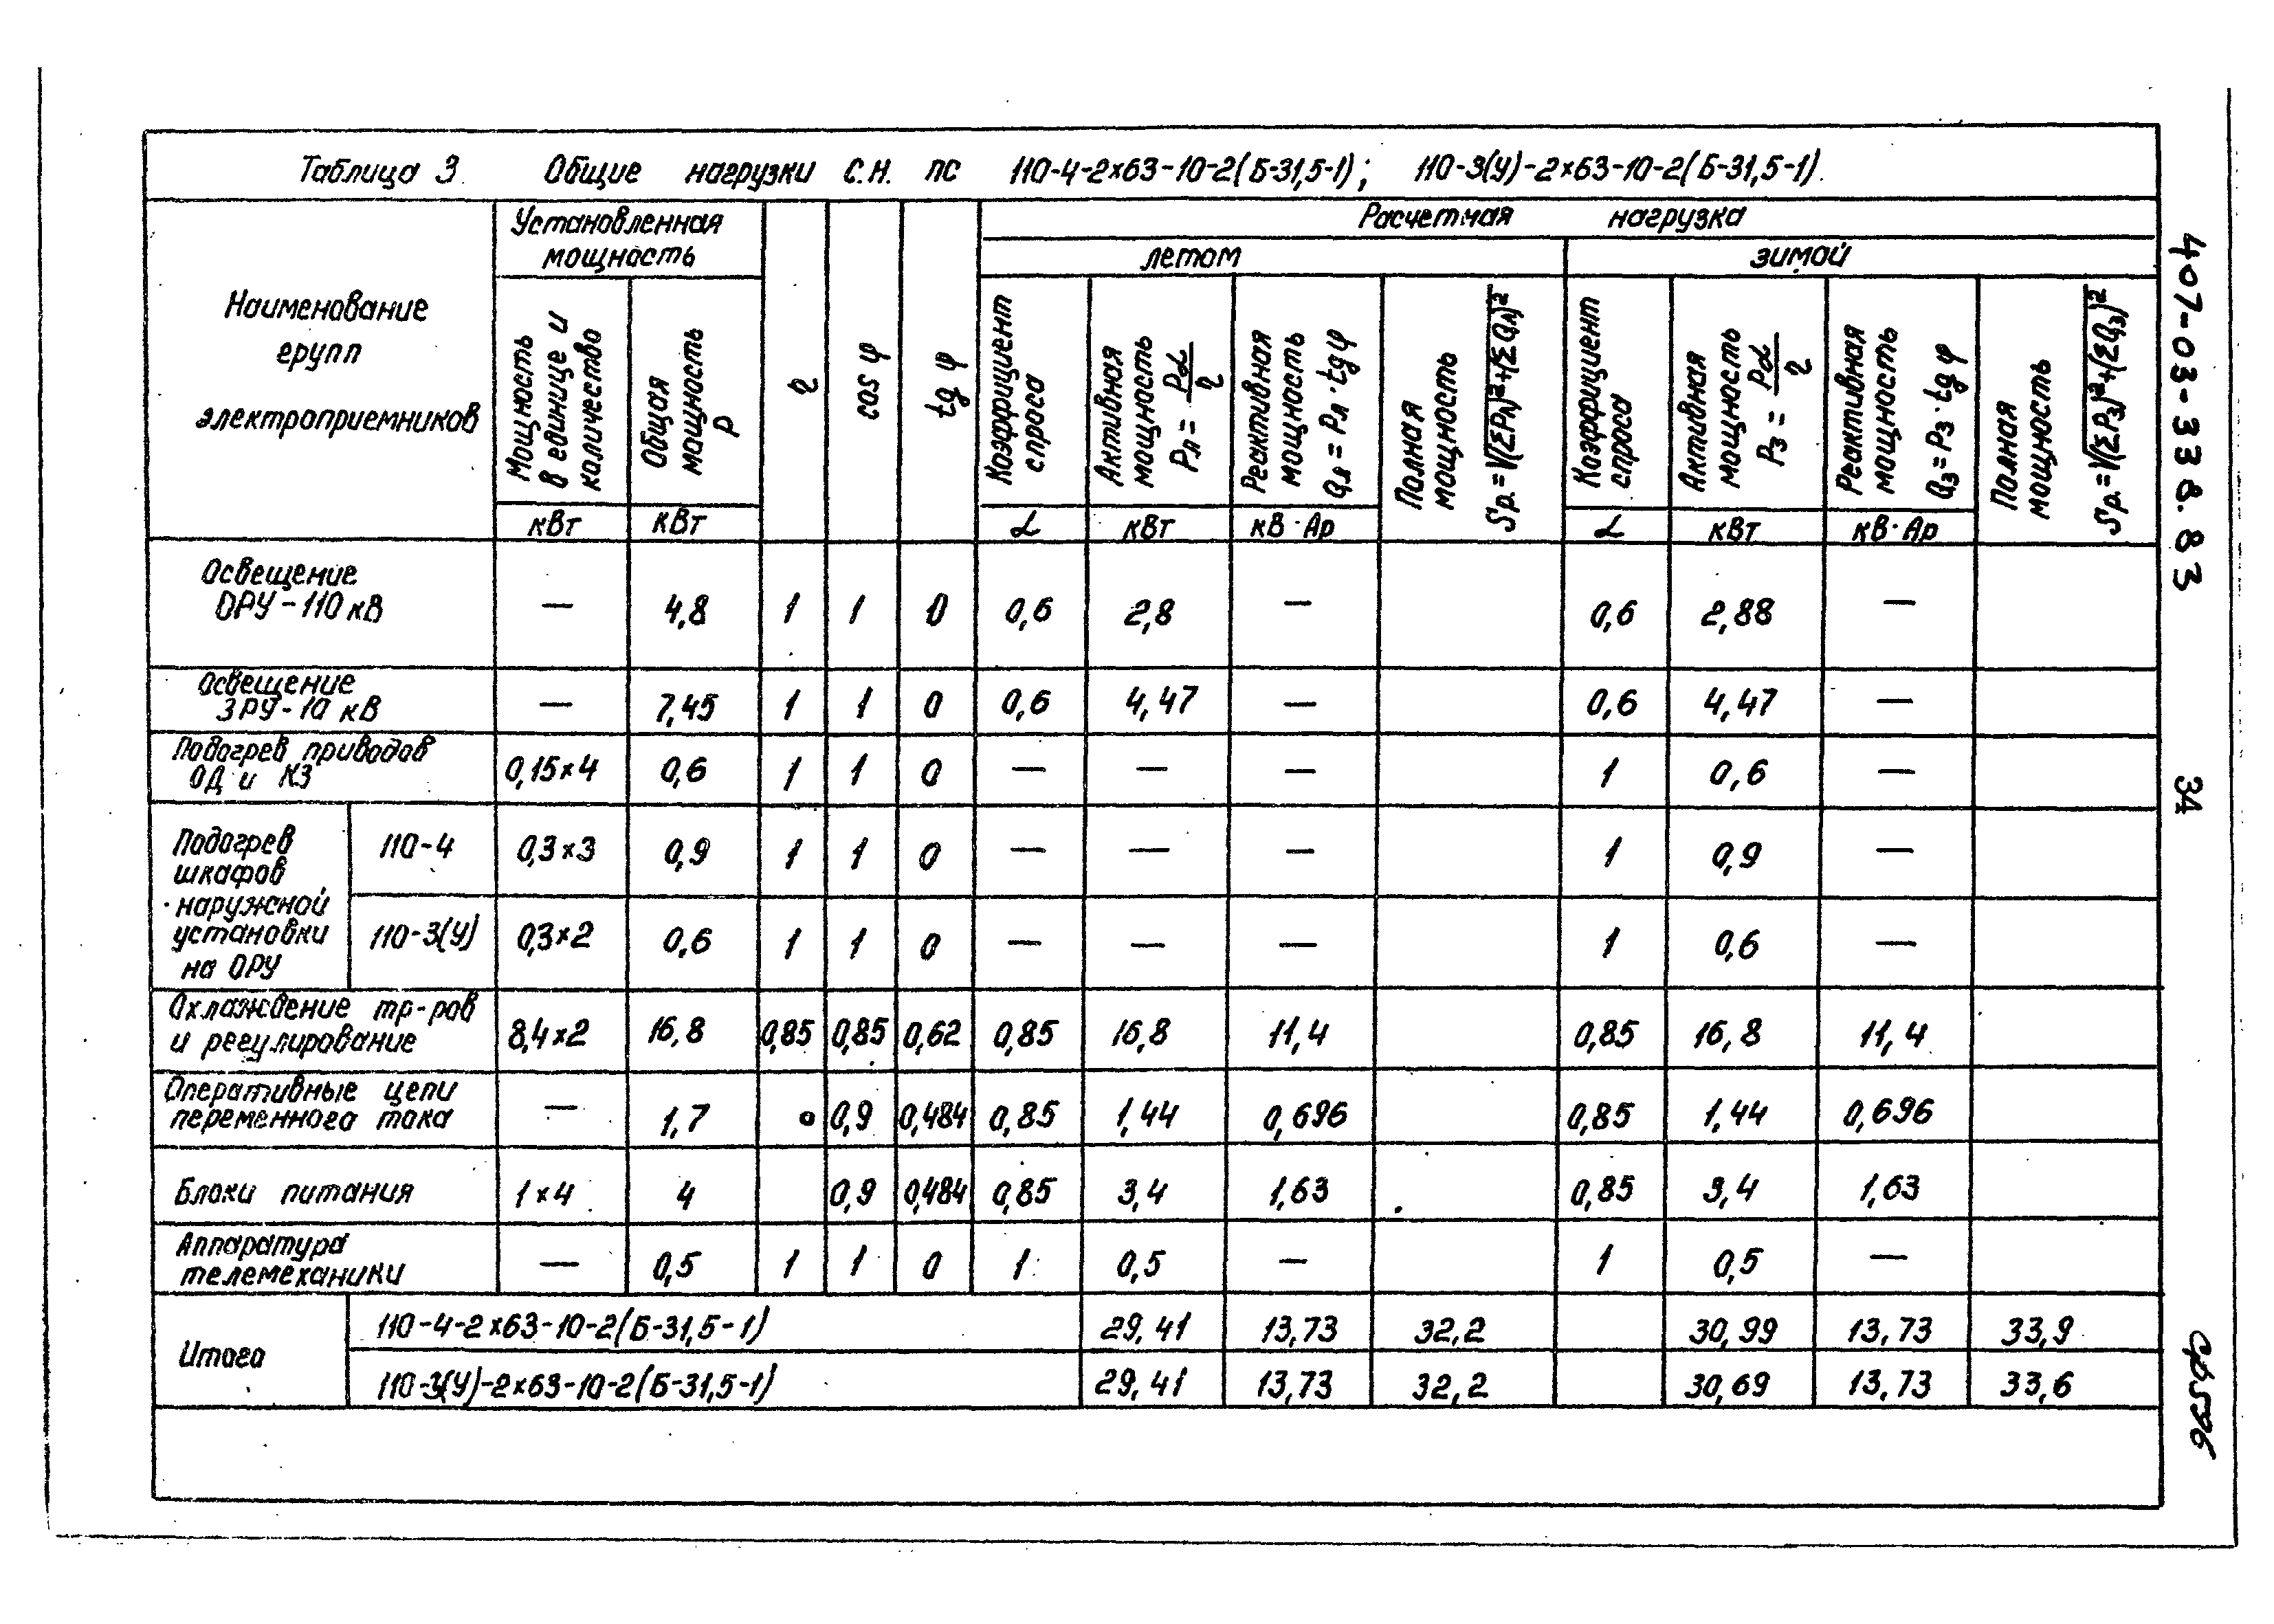 Таблица 3. Общие нагрузки С.Н. ПС 110-4-2×63-10-2(Б-31,5-1); 110-3(У)-2×63-10-2(Б-31,5-1).
Наименование
групп
электроприемников
Установленная
мощность
Мощность
в единице и
количество
кВт
Общая
мощность
P
кВт
η
cos φ
tg φ
Расчетная нагрузка
летом
Коэффициент
спроса
α
Активная
мощность
Pл = Pα/η
кВт
Реактивная
мощность
Qл = Pл · tg φ
кВ·Ар
Полная
мощность
Sр. = √(ΣPл)²+(ΣQл)²
зимой
Коэффициент
спроса
α
Активная
мощность
Pз = Pα/η
кВт
Реактивная
мощность
Qз = Pз · tg φ
кВ·Ар
Полная
мощность
Sр. = √(ΣPз)²+(ΣQз)²
Освещение
ОРУ-110 кВ — 4,8 1 1 0 0,6 2,8 — 0,6 2,88 —
Освещение
ЗРУ-10 кВ — 7,45 1 1 0 0,6 4,47 — 0,6 4,47 —
Подогрев приводов
ОД и КЗ 0,15×4 0,6 1 1 0 — — — 1 0,6 —
Подогрев
шкафов
наружной
установки
на ОРУ
110-4 0,3×3 0,9 1 1 0 — — — 1 0,9 —
110-3(У) 0,3×2 0,6 1 1 0 — — — 1 0,6 —
Охлаждение тр-ров
и регулирование 8,4×2 16,8 0,85 0,85 0,62 0,85 16,8 11,4 0,85 16,8 11,4
Оперативные цепи
переменного тока — 1,7 0 0,9 0,484 0,85 1,44 0,696 0,85 1,44 0,696
Блоки питания 1×4 4 0,9 0,484 0,85 3,4 1,63 0,85 3,4 1,63
Аппаратура
телемеханики — 0,5 1 1 0 1 0,5 — 1 0,5 —
Итого
110-4-2×63-10-2(Б-31,5-1) 29,41 13,73 32,2 30,99 13,73 33,9
110-3(У)-2×63-10-2(Б-31,5-1) 29,41 13,73 32,2 30,69 13,73 33,6
407-03-338.83
34